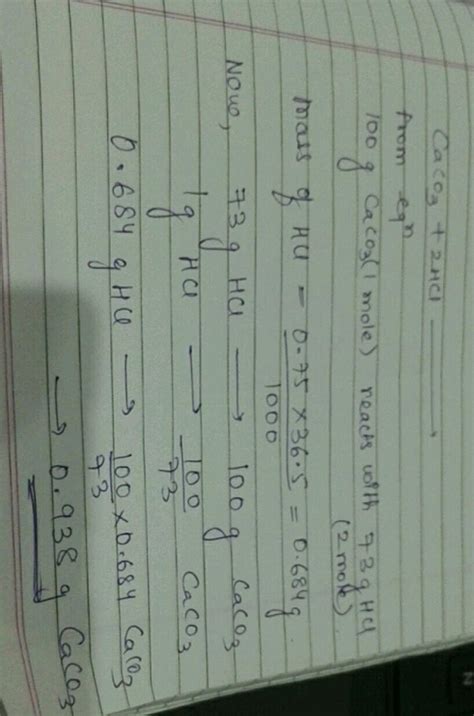 CaCO3 + 2HCl ⟶
from eqn
100 g CaCO3 (1 mole) reacts with 73 g HCl
(2 mole).
Mass of HCl = 0.75 × 36.5 / 1000 = 0.684 g.
Now, 73 g HCl ⟶ 100 g CaCO3
1 g HCl ⟶ 100/73 CaCO3
0.684 g HCl ⟶ 100/73 × 0.684 CaCO3
⟶ 0.938 g CaCO3
N